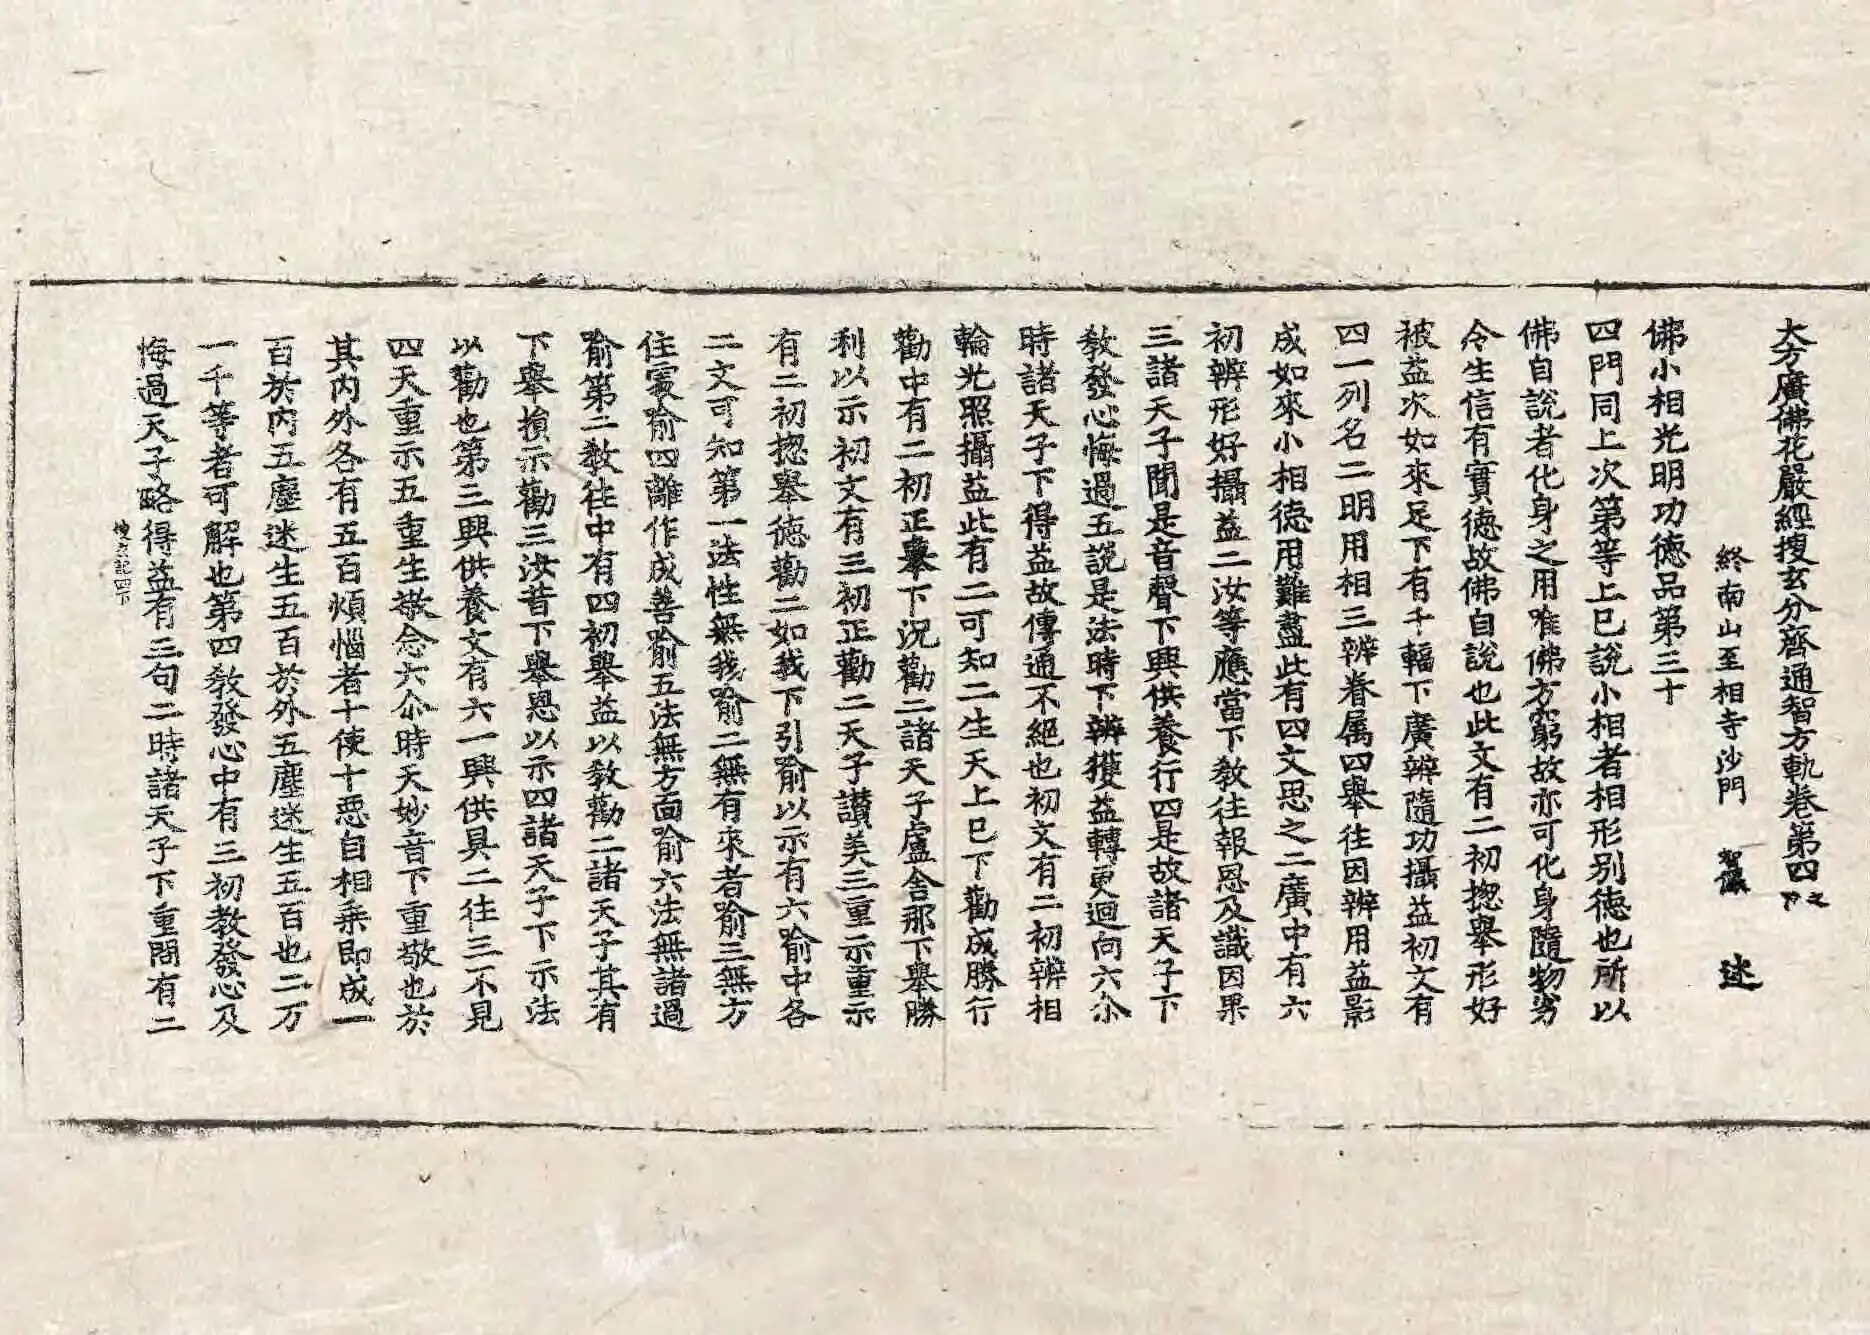 大方廣佛花嚴經搜玄分齊通智方軌卷第四之下
終南山至相寺沙門 智儼 述
佛小相光明功德品第三十
四門同上次第等上已說小相者相形別德也所以
佛自說者化身之用唯佛方窮故亦可化身隨物劣
令生信有實德故佛自說也此文有二初揔舉形好
被益次如來足下有千輻下廣辨隨功攝益初文有
四一列名二明用相三辨眷属四舉往因辨用益影
成如來小相德用難盡此有四文思之二廣中有六
初辨形好攝益二汝等應當下教往報恩及識因果
三諸天子聞是音聲下興供養行四是故諸天子下
教發心悔過五說是法時下辨獲益轉更迴向六尒
時諸天子下得益故傳通不絕也初文有二初辨相
輪光照攝益此有二可知二生天上已下勸成勝行
勸中有二初正舉下況勸二諸天子盧舍那下舉勝
利以示初文有三初正勸二天子讚美三重示重示
有二初揔舉德勸二如我下引喻以示有六喻中各
二文可知第一法性無我喻二無有來者喻三無方
住處喻四離作成善喻五法無方面喻六法無諸過
喻第二教往中有四初舉益以教勸二諸天子其有
下舉損示勸三汝昔下舉恩以示四諸天子下示法
以勸也第三興供養文有六一興供具二往三不見
四天重示五重生敬念六尒時天妙音下重敬也於
其內外各有五百煩惱者十使十惡自相乗即成一
百於內五塵迷生五百於外五塵迷生五百也二万
一千等者可解也第四教發心中有三初教發心及
悔過天子略得益有三句二時諸天子下重問有二
搜玄記四下